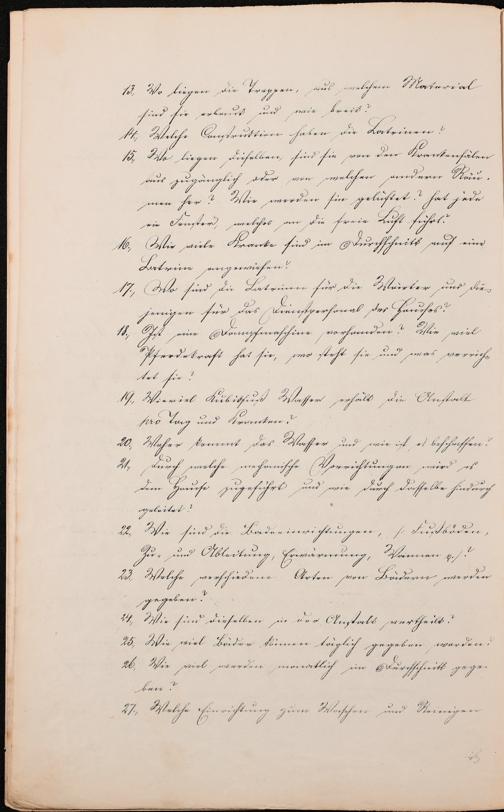 13, Wo liegen die Treppen, aus welchem Material
sind sie erbaut und wie breit?
14, Welche Construktion haben die Latrinen?
15, Wo liegen dieselben, sind sie von den Krankensälen
aus zugänglich oder von welchen andern Räu-
men her? Wie werden sie gelüftet? hat jede
ein Fenster, welches an die freie Luft führt?
16, Wie viele Kranke sind im Durchschnitt auf eine
Latrine angewiesen?
17, Wo sind die Latrinen für die Wärter und die-
jenigen für das Dienstpersonal des Hauses?
18, Ist eine Dampfmaschine vorhanden? Wie viel
Pferdekraft hat sie, wo steht sie und was verrich-
tet sie?
19, Wieviel Kubikfuß Wasser erhält die Anstalt
pro Tag und Kranken?
20, Woher kommt das Wasser und wie ist es beschaffen?
21, Durch welche mechanische Vorrichtungen wird es
dem Hause zugeführt und wie durch dasselbe hindurch
geleitet?
22, Wie sind die Badeeinrichtungen, (: Fußböden,
Zu- und Ableitung, Erwärmung, Wannen :)?
23, Welche verschiedene Arten von Bädern werden
gegeben?
24, Wie sind dieselben in der Anstalt vertheilt?
25, Wie viel Bäder können täglich gegeben werden?
26, Wie viel werden monatlich im Durchschnitt gege-
ben?
27, Welche Einrichtung zum Waschen und Reinigen